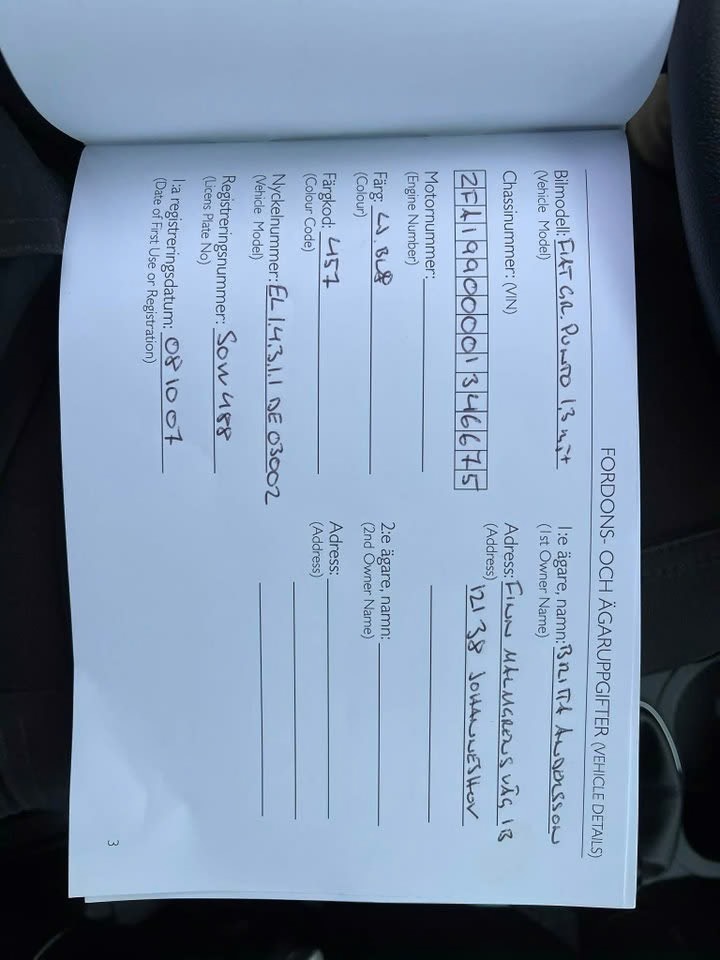 FORDONS- OCH ÄGARUPPGIFTER (VEHICLE DETAILS)
Bilmodell: FIAT GR. PUNTO 1,3 mjt
(Vehicle Model)
Chassinummer: (VIN)
ZFA19900001346675
Motornummer:
(Engine Number)
Färg: LJ. BLÅ
(Colour)
Färgkod: 457
(Colour Code)
Nyckelnummer: EL 1.4.3.1.1 DE 03002
(Vehicle Model)
Registreringsnummer: SOW 488
(Licens Plate No)
1:a registreringsdatum: 08 10 07
(Date of First Use or Registration)
1:e ägare, namn: BRITTA ANDERSSON
(1st Owner Name)
Adress: FINN MALMGRENS VÄG 1B
(Address) 121 38 JOHANNESHOV
2:e ägare, namn:
(2nd Owner Name)
Adress:
(Address)
3